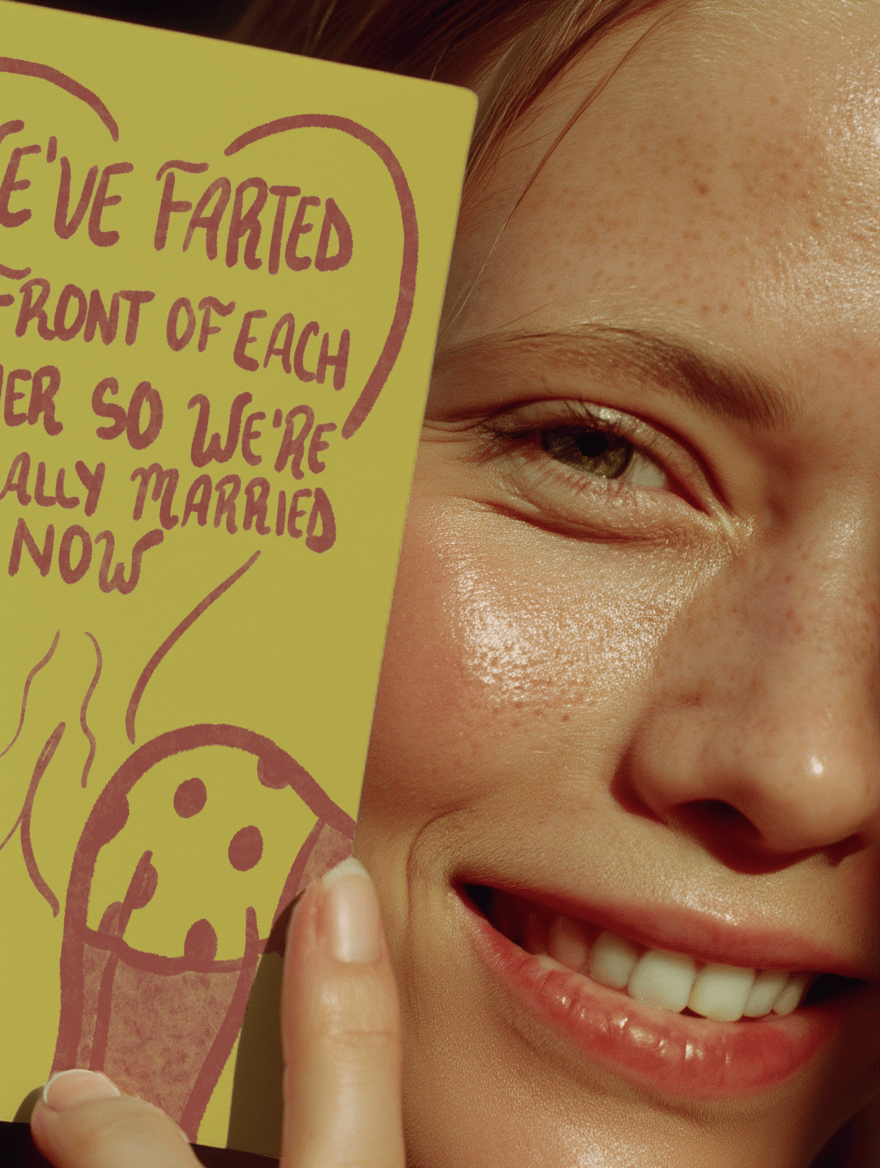 E'VE FARTED
FRONT OF EACH
ER SO WE'RE
ALLY MARRIED
NOW